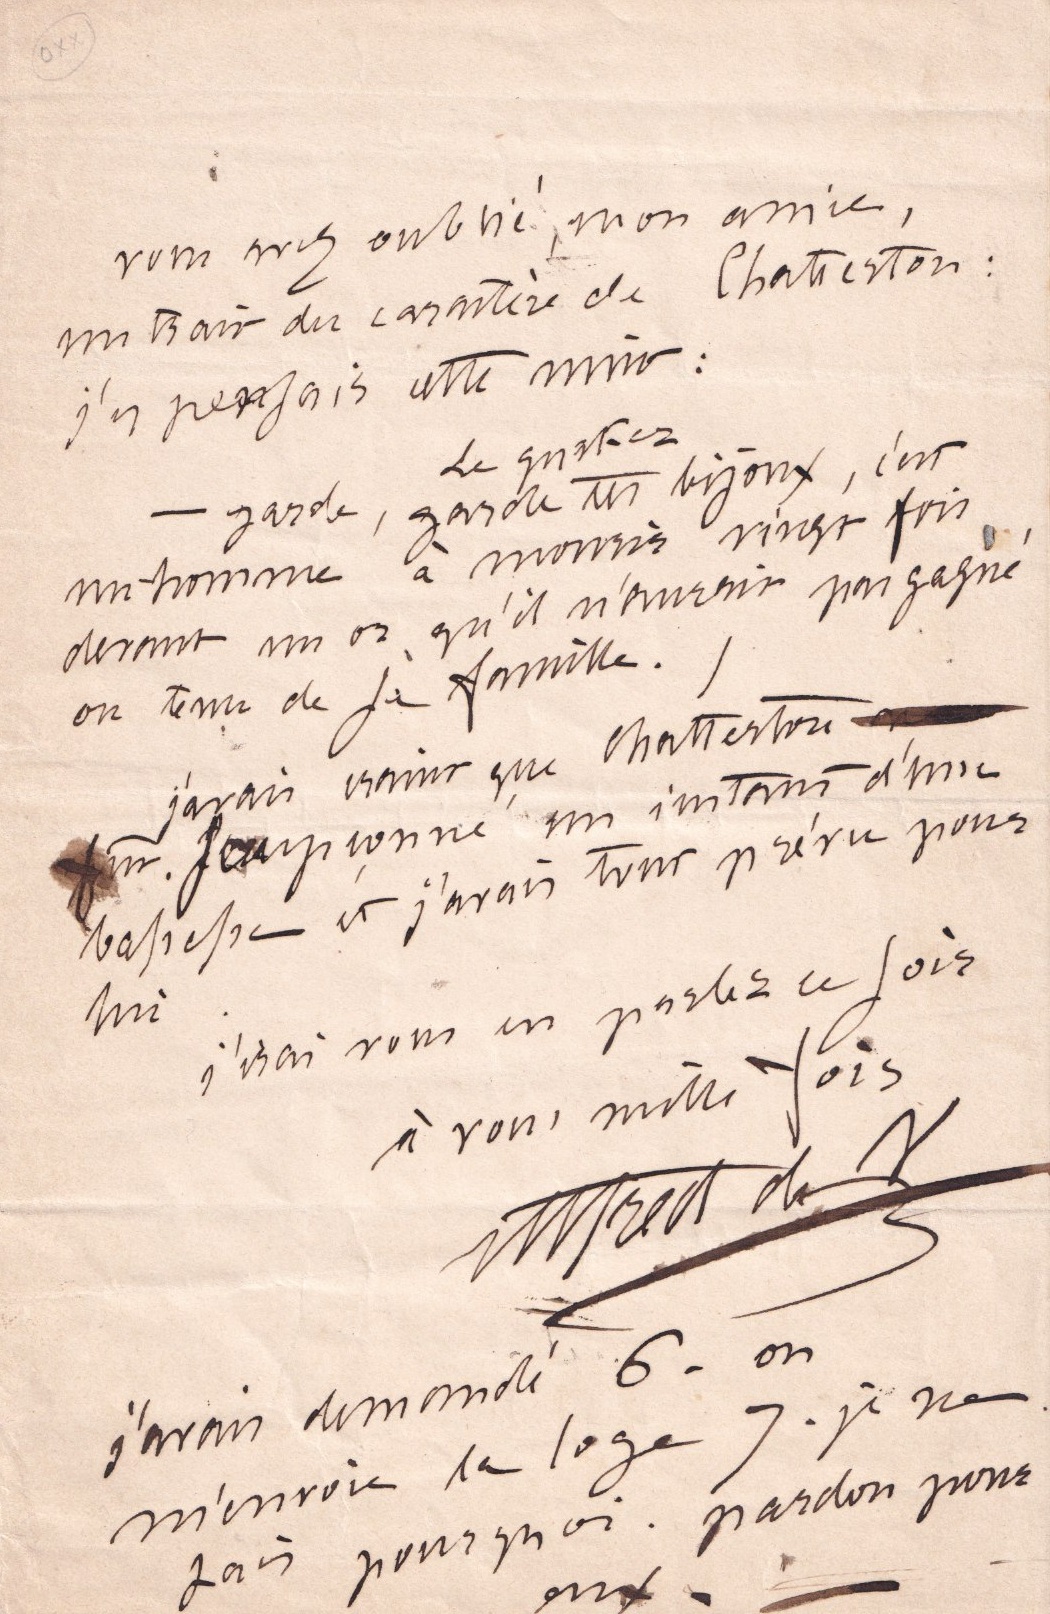 vous avez oublié, mon amie,
un trait du caractère de Chatterton :
j'y pensais cette nuit :
Le quaker
— garde, garde tes bijoux, c'est
un homme à mourir vingt fois
devant un or qu'il n'aurait pas gagné
ou tenu de sa famille.
j'avais craint que Chatterton
fût soupçonné un instant d'une
bassesse et j'avais tout prévu pour
lui.
j'irai vous en parler ce soir
à vous mille fois
Alfred de V
j'avais demandé 6 - on
m'envoie la loge 7. je ne
sais pourquoi. pardon pour
eux -